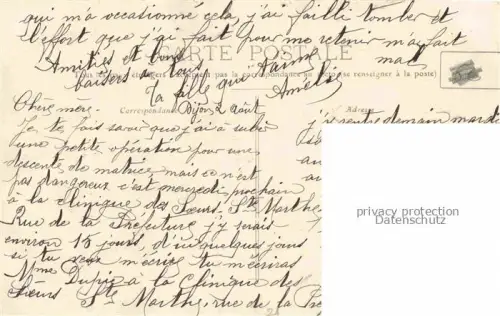 qui m'a occasionné cela j'ai failli tomber et
l'effort que j'ai fait pour me retenir m'a fait
mal
CARTE POSTALE
Amitiés et bons
baisers à tous
Ta fille qui t'aime
Amélie
Correspondance
Adresse
Dijon, 2 août
Chère mère.
Je te fais savoir que j'ai à subir
une petite opération pour une
descente de matrice, mais ce n'est
pas dangereux c'est mercredi prochain
à la clinique des Sœurs, Ste Marthe
Rue de la Préfecture j'y serais
environ 15 jours, d'ici quelques jours
si tu veux m'écrire tu m'écriras
Mme Dupin à la Clinique des
Sœurs Ste Marthe, rue de la Pré
j'y rentre demain mardi
privacy protection
Datenschutz